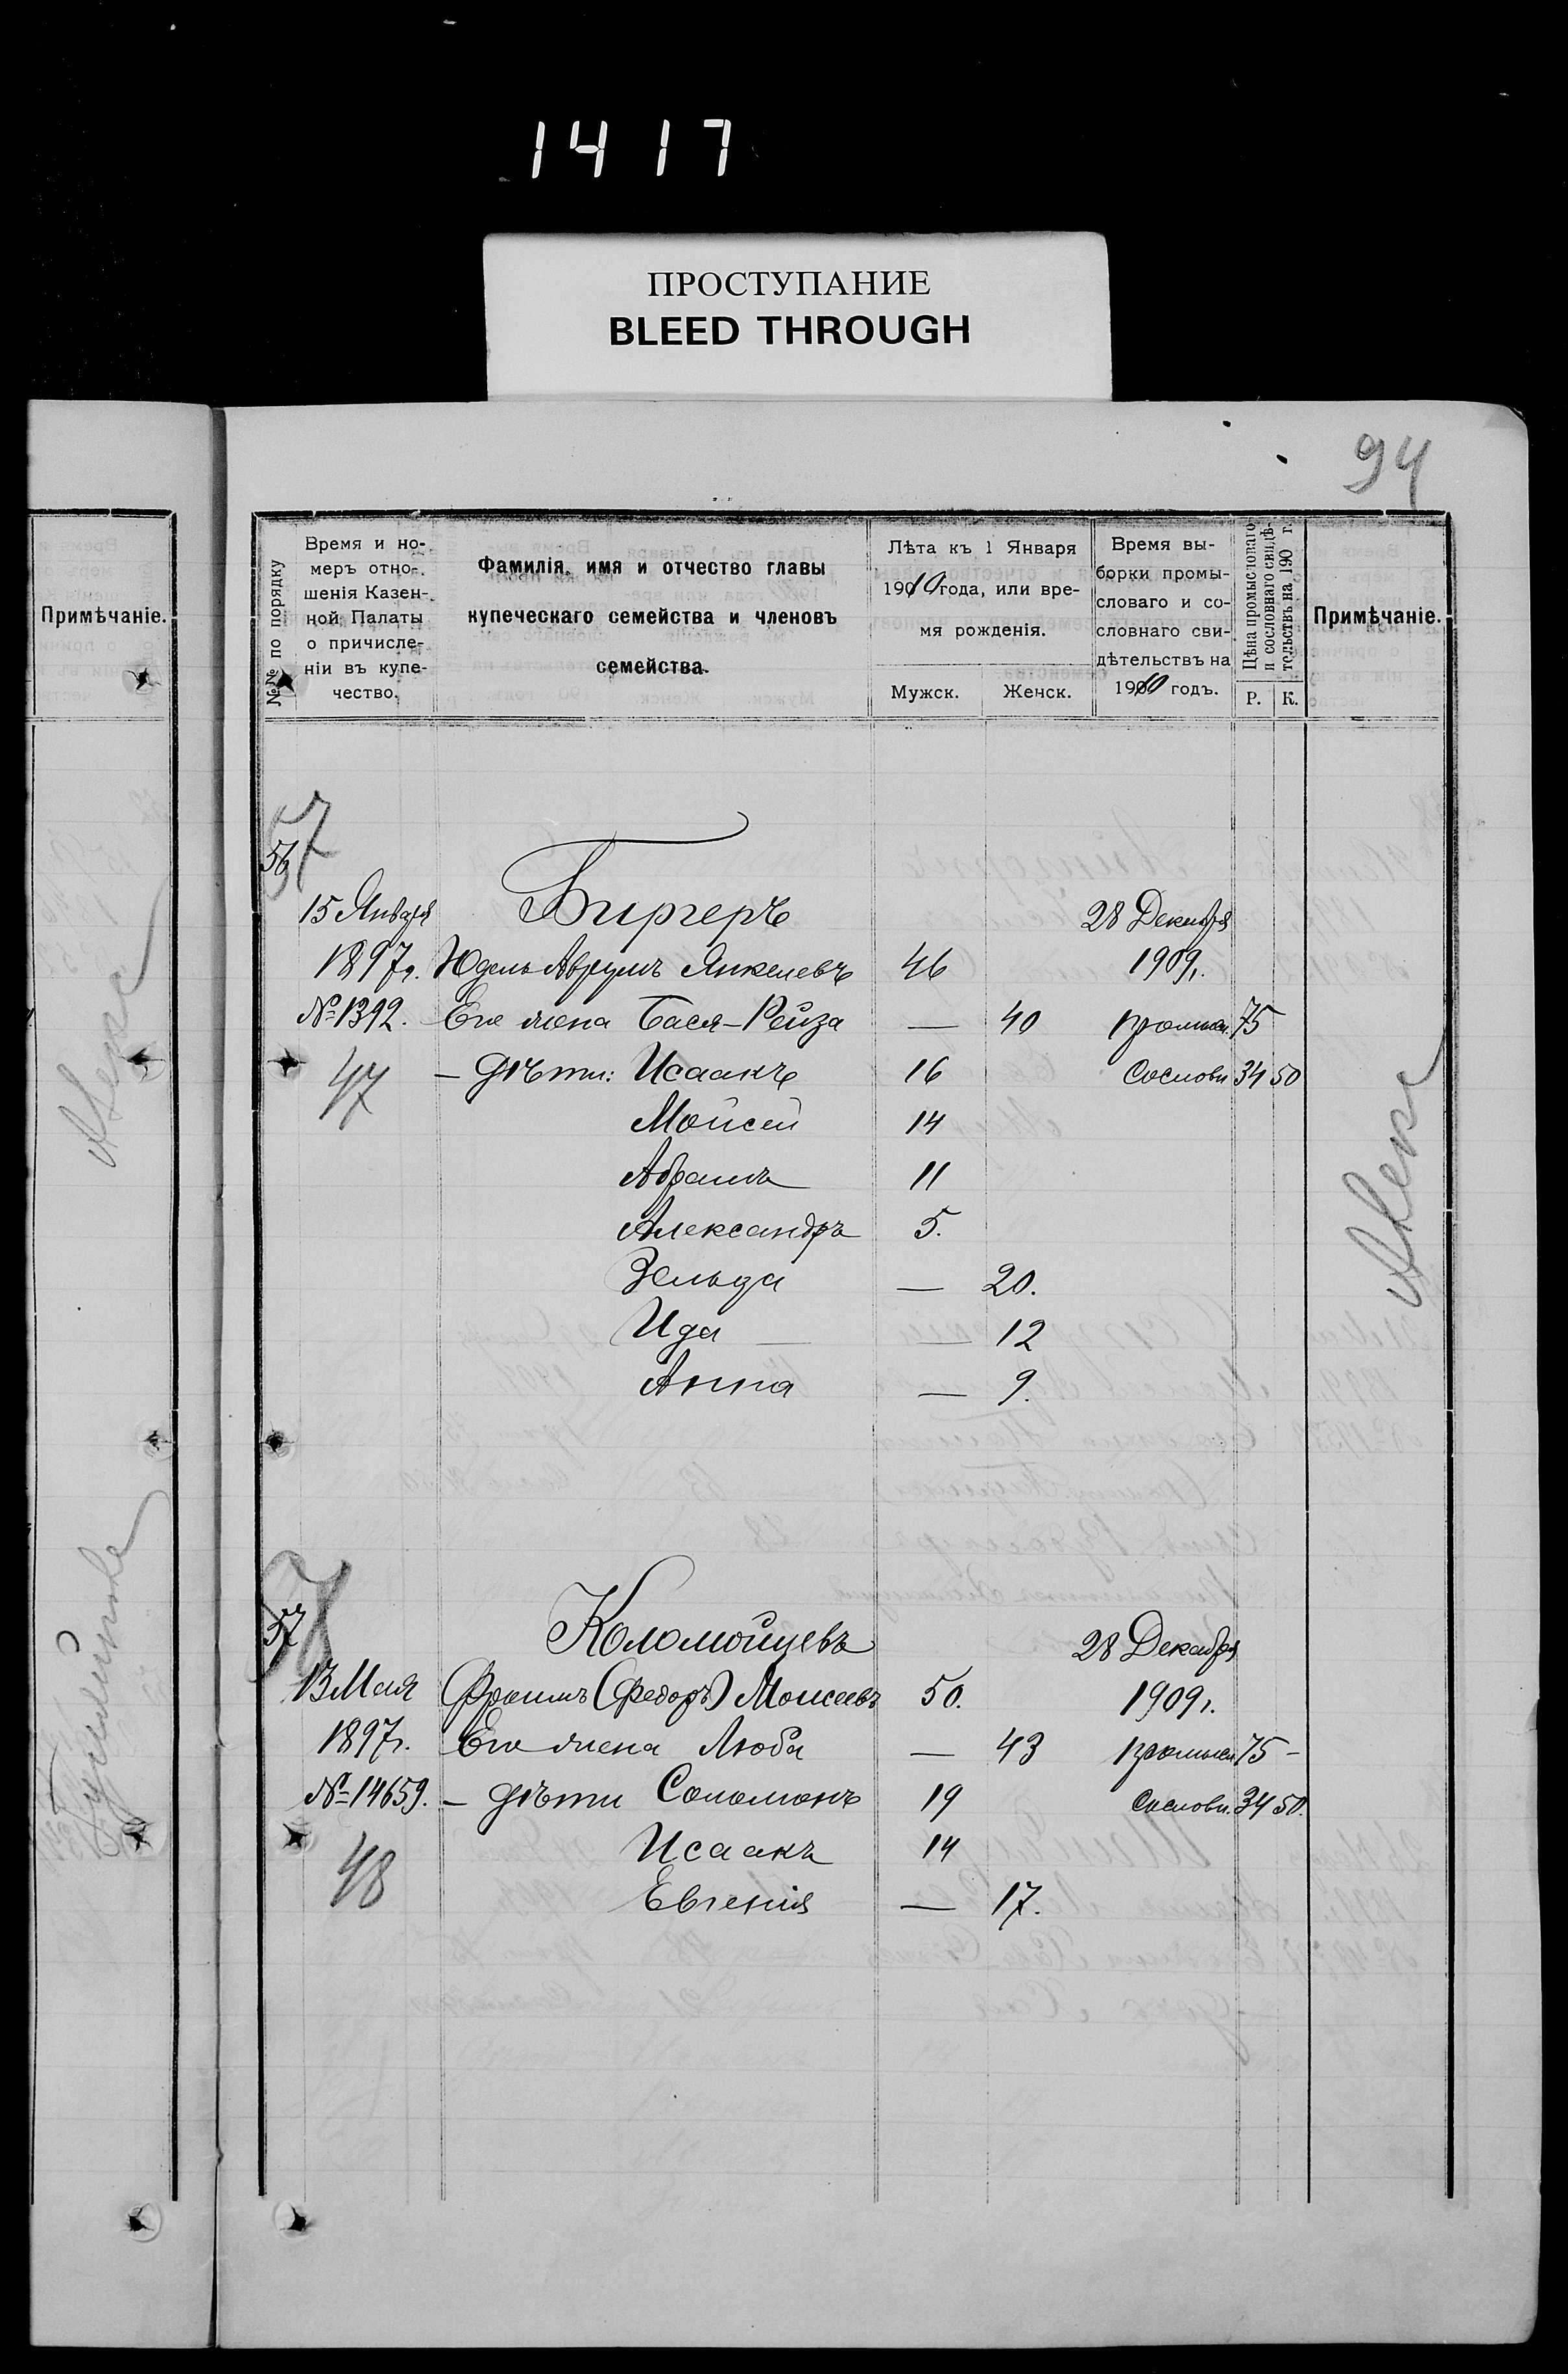 1417
ПРОСТУПАНИЕ
BLEED THROUGH
94
Примѣчаніе.
№№ по порядку
Время и но-
меръ отно-
шенія Казен-
ной Палаты
о причисле-
ніи въ купе-
чество.
Фамилія, имя и отчество главы
купеческаго семейства и членовъ
семейства.
Лѣта къ 1 Января
1910 года, или вре-
мя рожденія.
Мужск. Женск.
Время вы-
борки промы-
словаго и со-
словнаго сви-
дѣтельствъ на
1910 годъ.
Цѣна промысловаго
и сословнаго свидѣ-
тельствъ на 190 г.
Р. К.
Примѣчаніе.
57
56
15 Января Биргеръ 28 Декабря
1897 г. Юдель Аврумъ Янкелевъ 46 1909 г.
№ 1392. Его жена Бася-Рейза — 40 промысл. 75
47 — дѣти: Исаакъ 16 Сословн 34 50
Мойсей 14
Абрамъ 11
Александръ 5.
Зельда — 20.
Ида — — 12
Анна — 9.
57
Коломойцевъ 28 Декабря
13 Мая Фроимъ (Федоръ) Моисеевъ 50. 1909 г.
1897 г. Его жена Люба — 43 промысл 75 —
№ 14659. — дѣти Соломонъ 19 Сословн. 34 50.
48 Исаакъ 14
Евгенія — 17.